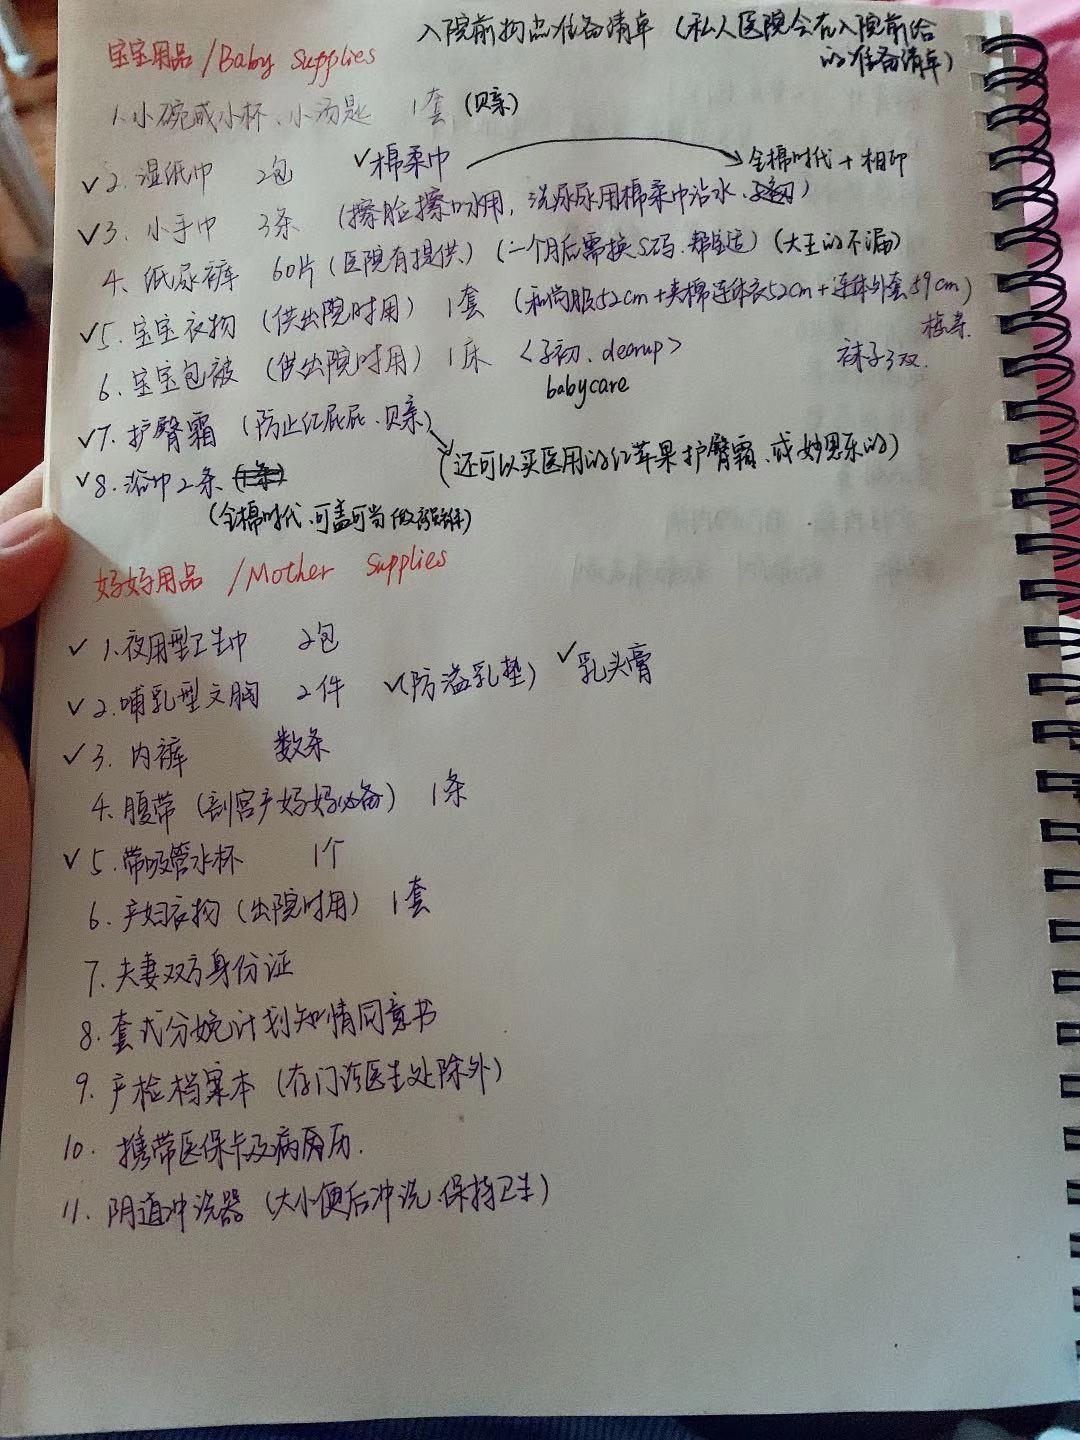 入院前物品准备清单（私人医院会在入院前给
的准备清单）
宝宝用品/Baby Supplies
1.小碗或小杯、小汤匙 1套（贝亲）
✓2.湿纸巾 2包 ✓棉柔巾 → 全棉时代+相印
✓3.小手巾 3条（擦脸擦口水用，洗尿尿用棉柔巾沾水、）
4、纸尿裤 60片（医院有提供）（一个月后需换S码.帮宝适）（大王的不漏）
✓5.宝宝衣物（供出院时用）1套（和尚服52cm+夹棉连体衣52cm+连体外套59cm）
袜子3双.
6.宝宝包被（供出院时用）1床〈子初、dearup〉
babycare
✓7.护臀霜（防止红屁屁、贝亲）
（还可以买医用的红苹果护臀霜、或妙思乐的）
✓8.浴巾2条
（全棉时代、可盖可当）
妈妈用品/Mother Supplies
✓1.夜用型卫生巾 2包
✓2.哺乳型文胸 2件 ✓（防溢乳垫）✓乳头膏
✓3.内裤 数条
4.腹带（剖宫产妈妈必备）1条
✓5.带吸管水杯 1个
6.产妇衣物（出院时用）1套
7.夫妻双方身份证
8.套式分娩计划知情同意书
9.产检档案本（存门诊医生处除外）
10.携带医保卡及病历.
11.阴道冲洗器（大小便后冲洗、保持卫生）